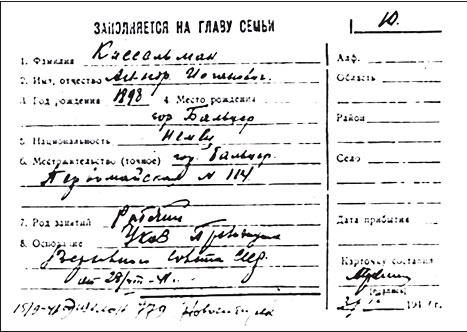 ЗАПОЛНЯЕТСЯ НА ГЛАВУ СЕМЬИ
10.
1. Фамилия Кассельман
2. Имя, отчество
3. Год рождения 1898 4. Место рождения
гор Бальцер
5. Национальность Немец
6. Местожительство (точное) гор. Бальцер.
Первомайская N 114
7. Род занятий
8. Основание Указ Президиума
Верховного Совета
от 28/VIII-41.
15/9-41 эшелон 779 Новосибирск
Алф.
Область
Район
Село
Дата прибытия
Карточку составил
(подпись)
194 г.